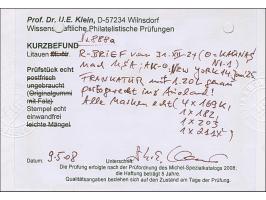 Prof. Dr. U.E. Klein, D-57234 Wilnsdorf
Wissenschaftliche Philatelistische Prüfungen
KURZBEFUND
Litauen
Prüfstück echt
postfrisch
ungebraucht
(Originalgummi
mit Falz)
Stempel echt
einwandfrei
leichte Mängel
R-BRIEF van 31.XII.21 (O-KAUNAS
nach USA; AK-O NEW YORK
FRANKATUR mit 1.20 L genau
portogerecht ins Ausland!
Alle Marken echt (4 x 169K)
1 x 182,
1 x 203
1 x 211
Datum: 9.5.08 Unterschrift:
Die Prüfung erfolgte nach der Prüfordnung des Michel-Spezialkatalogs 2008,
die Haftung beträgt 5 Jahre.
Qualitätsangaben beziehen sich auf den Zustand am Tage der Prüfung.